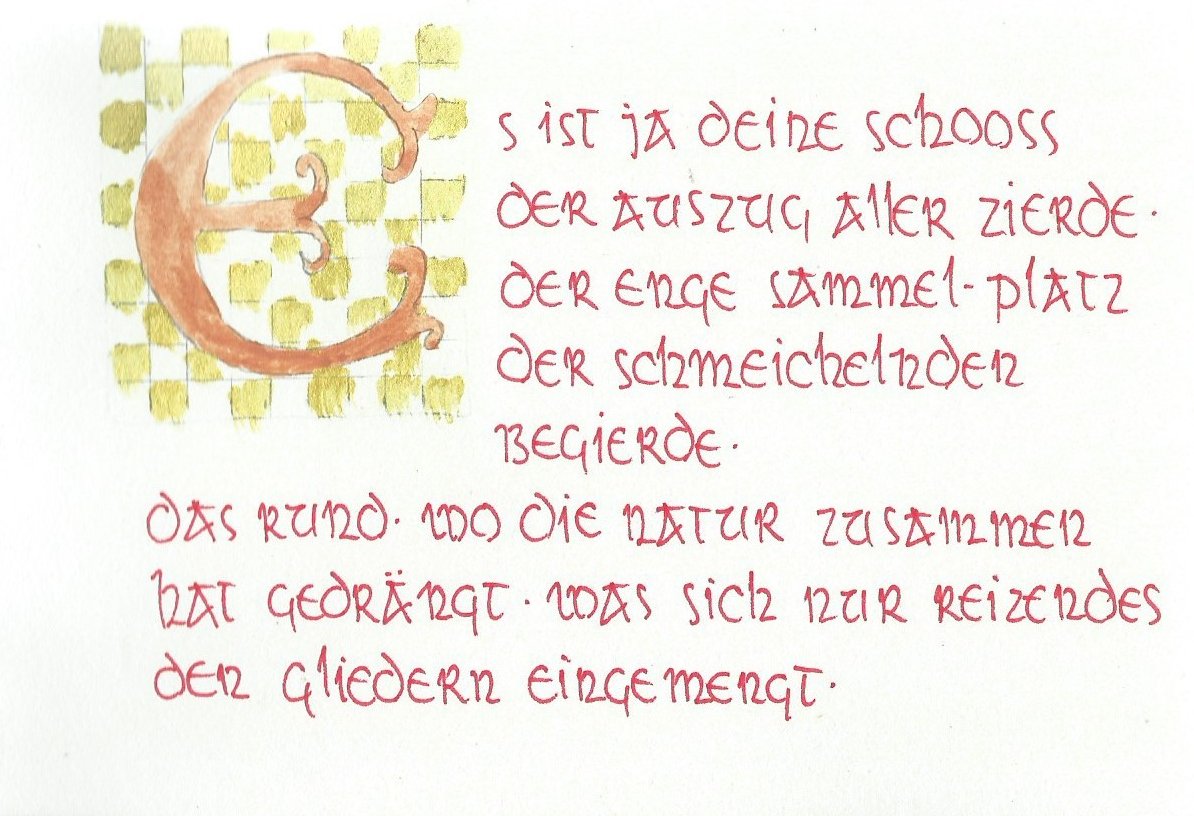 Es ist ja deine schooss
der auszug aller zierde.
der enge sammel-platz
der schmeichelnden
begierde.
das rund. wo die natur zusammen
hat gedrängt. was sich nur reizendes
den gliedern eingemengt.